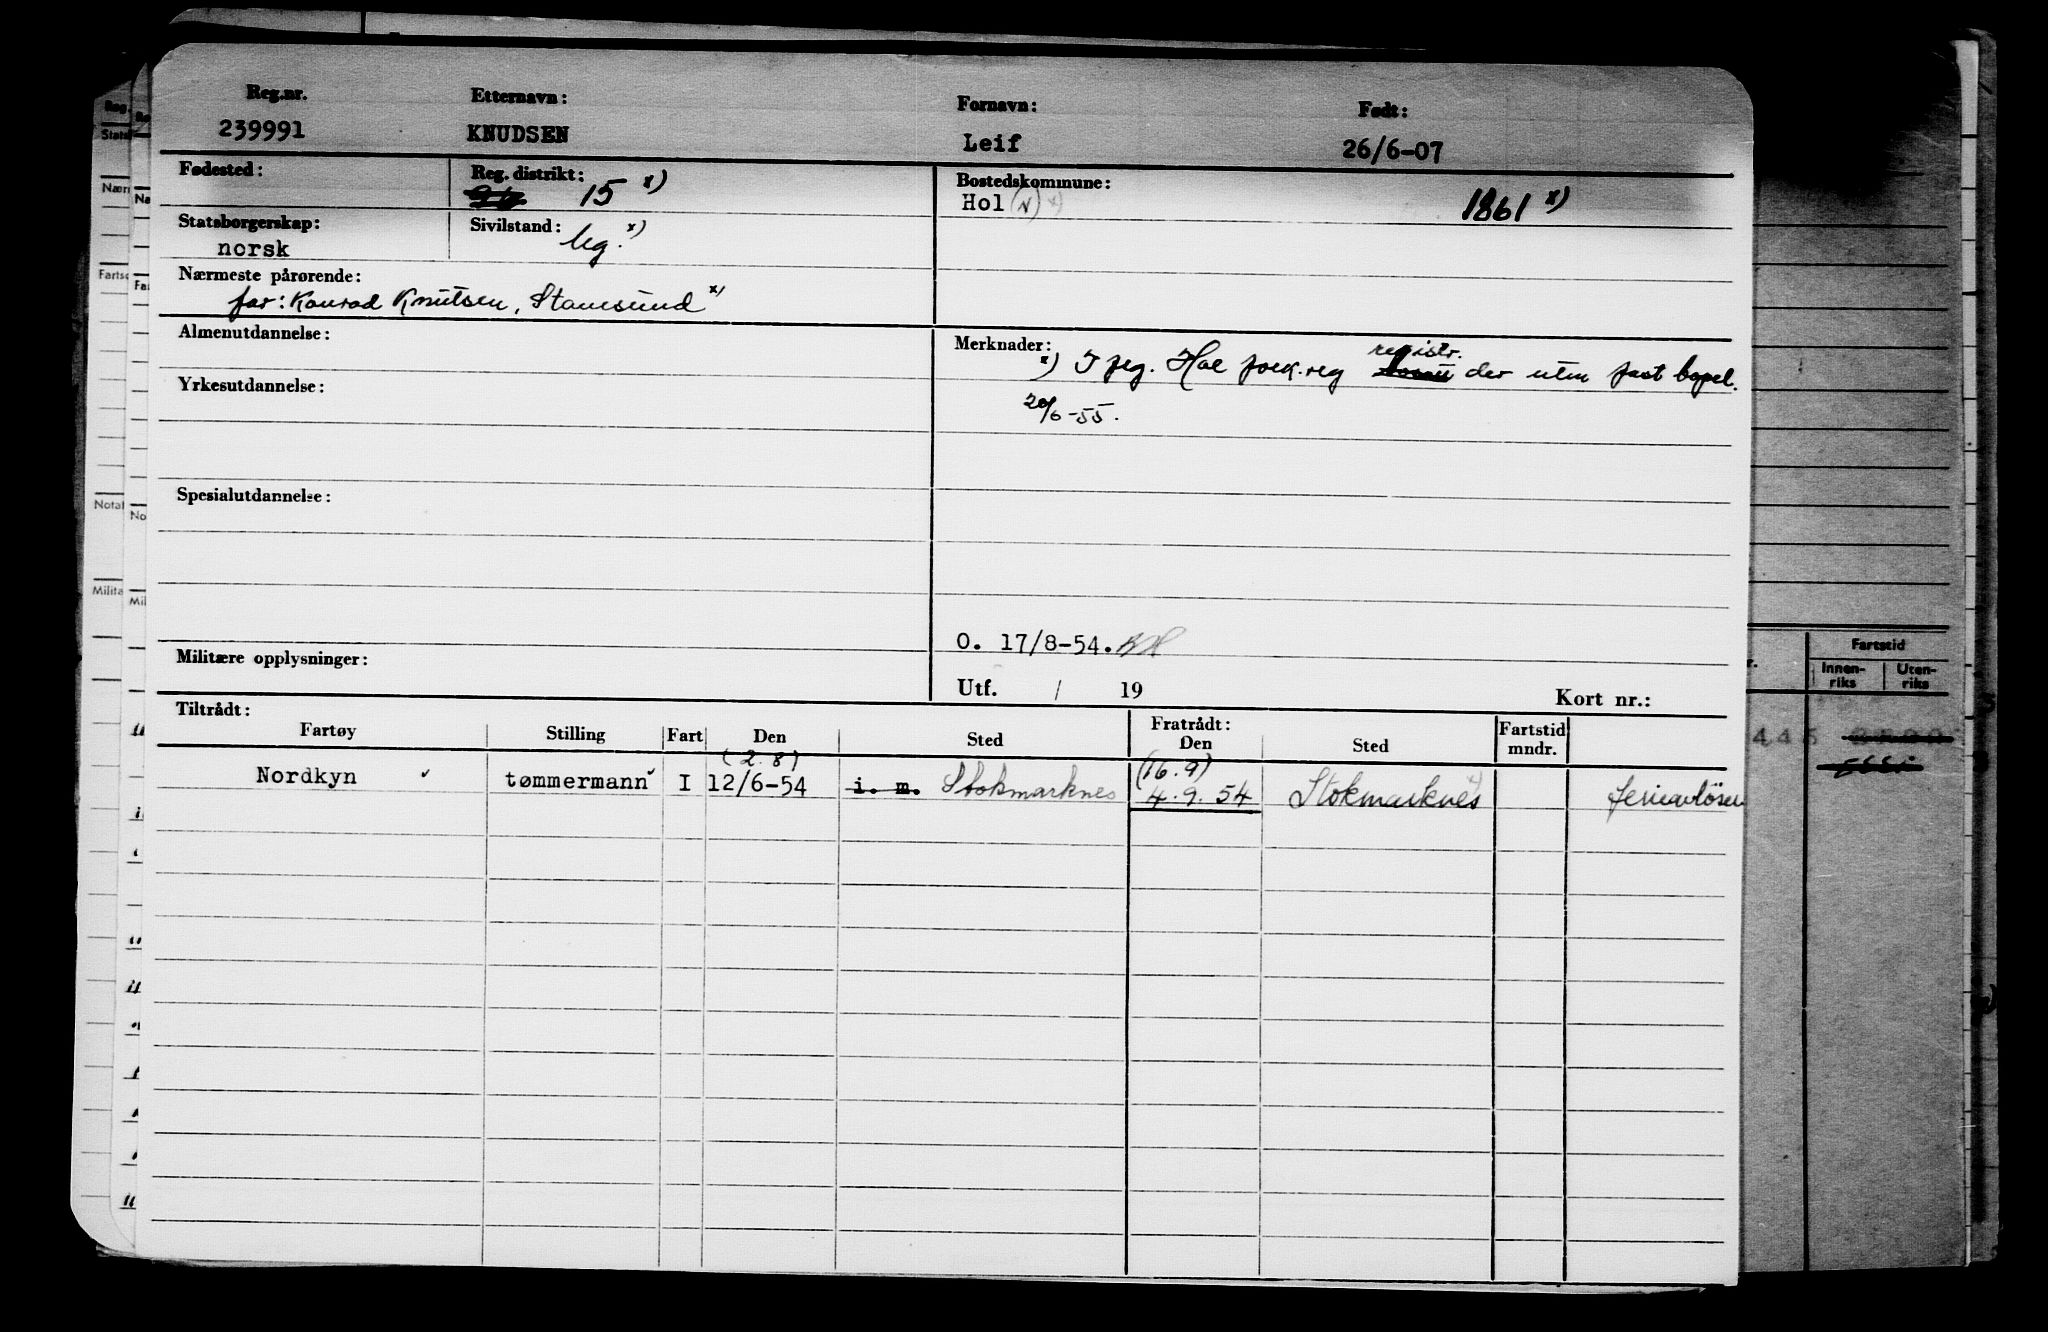 Reg.nr. Etternavn: Fornavn: Født:
239991 KNUDSEN Leif 26/6-07
Fødested: Reg. distrikt: 15 x) Bostedskommune:
Hol (N) x) 1861 x)
Statsborgerskap: Sivilstand: Ug. x)
norsk
Nærmeste pårørende:
far: Konrad Knutsen, Stamsund x)
Almenutdannelse: Merknader:
registr.
x) I flg. Hol folk.reg der uten fast bopel.
Yrkesutdannelse:
20/6-55.
Spesialutdannelse:
O. 17/8-54.
Militære opplysninger:
Utf. / 19 Kort nr.:
Tiltrådt: Fratrådt:
Fartøy Stilling Fart Den Sted Den Sted Fartstid mndr.
(2.8) (16.9)
Nordkyn tømmermann I 12/6-54 i. m. Stokmarknes 4.9.54 Stokmarknes x) ferieavløser
Fartstid
Innen-riks Uten-riks